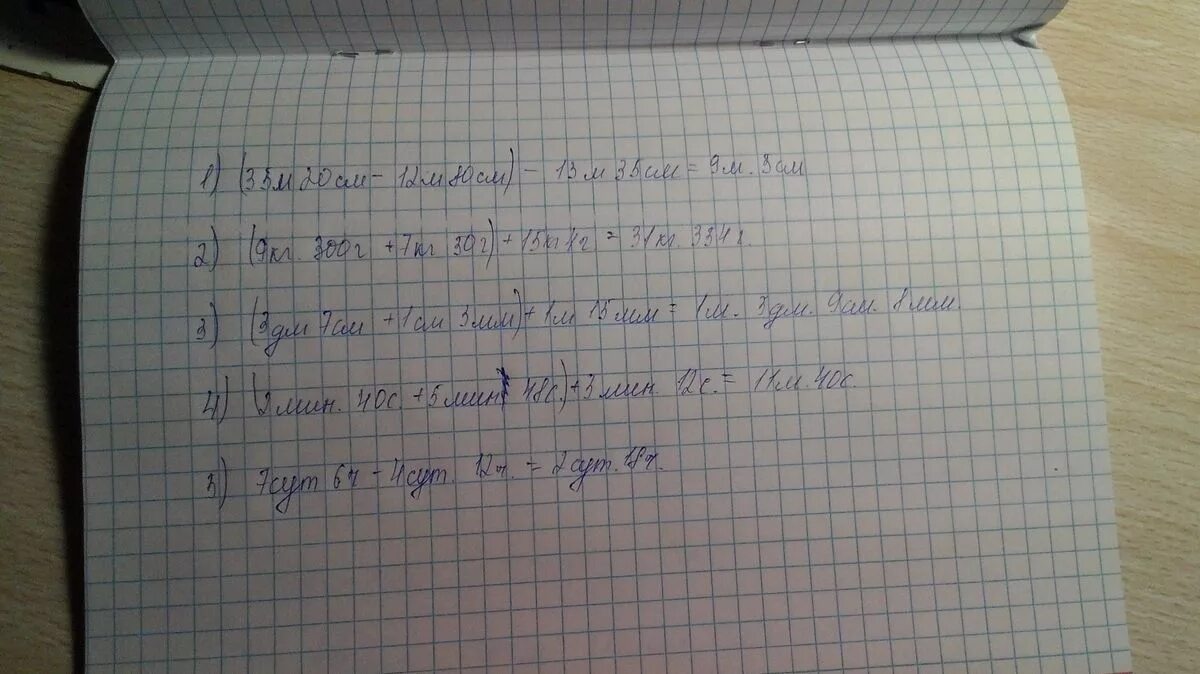 1) (35м 20см - 12м 80см) - 13м 35см = 9м. 5см
2) (9кг. 300г + 7кг 30г) + 15кг 4г = 31кг. 334г.
3) (3дм 7см + 1см 3мм) + 1м 15мм = 1м. 3дм. 9см. 8мм.
4) (2мин. 40с. + 5мин 48с.) + 3мин. 12с. = 11м. 40с.
5) 7сут 6ч - 4сут. 12ч. = 2сут. 18ч.